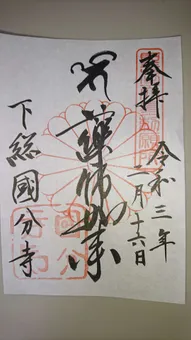 奉拝
令和三年一月十六日
薬師如来
下総國分寺